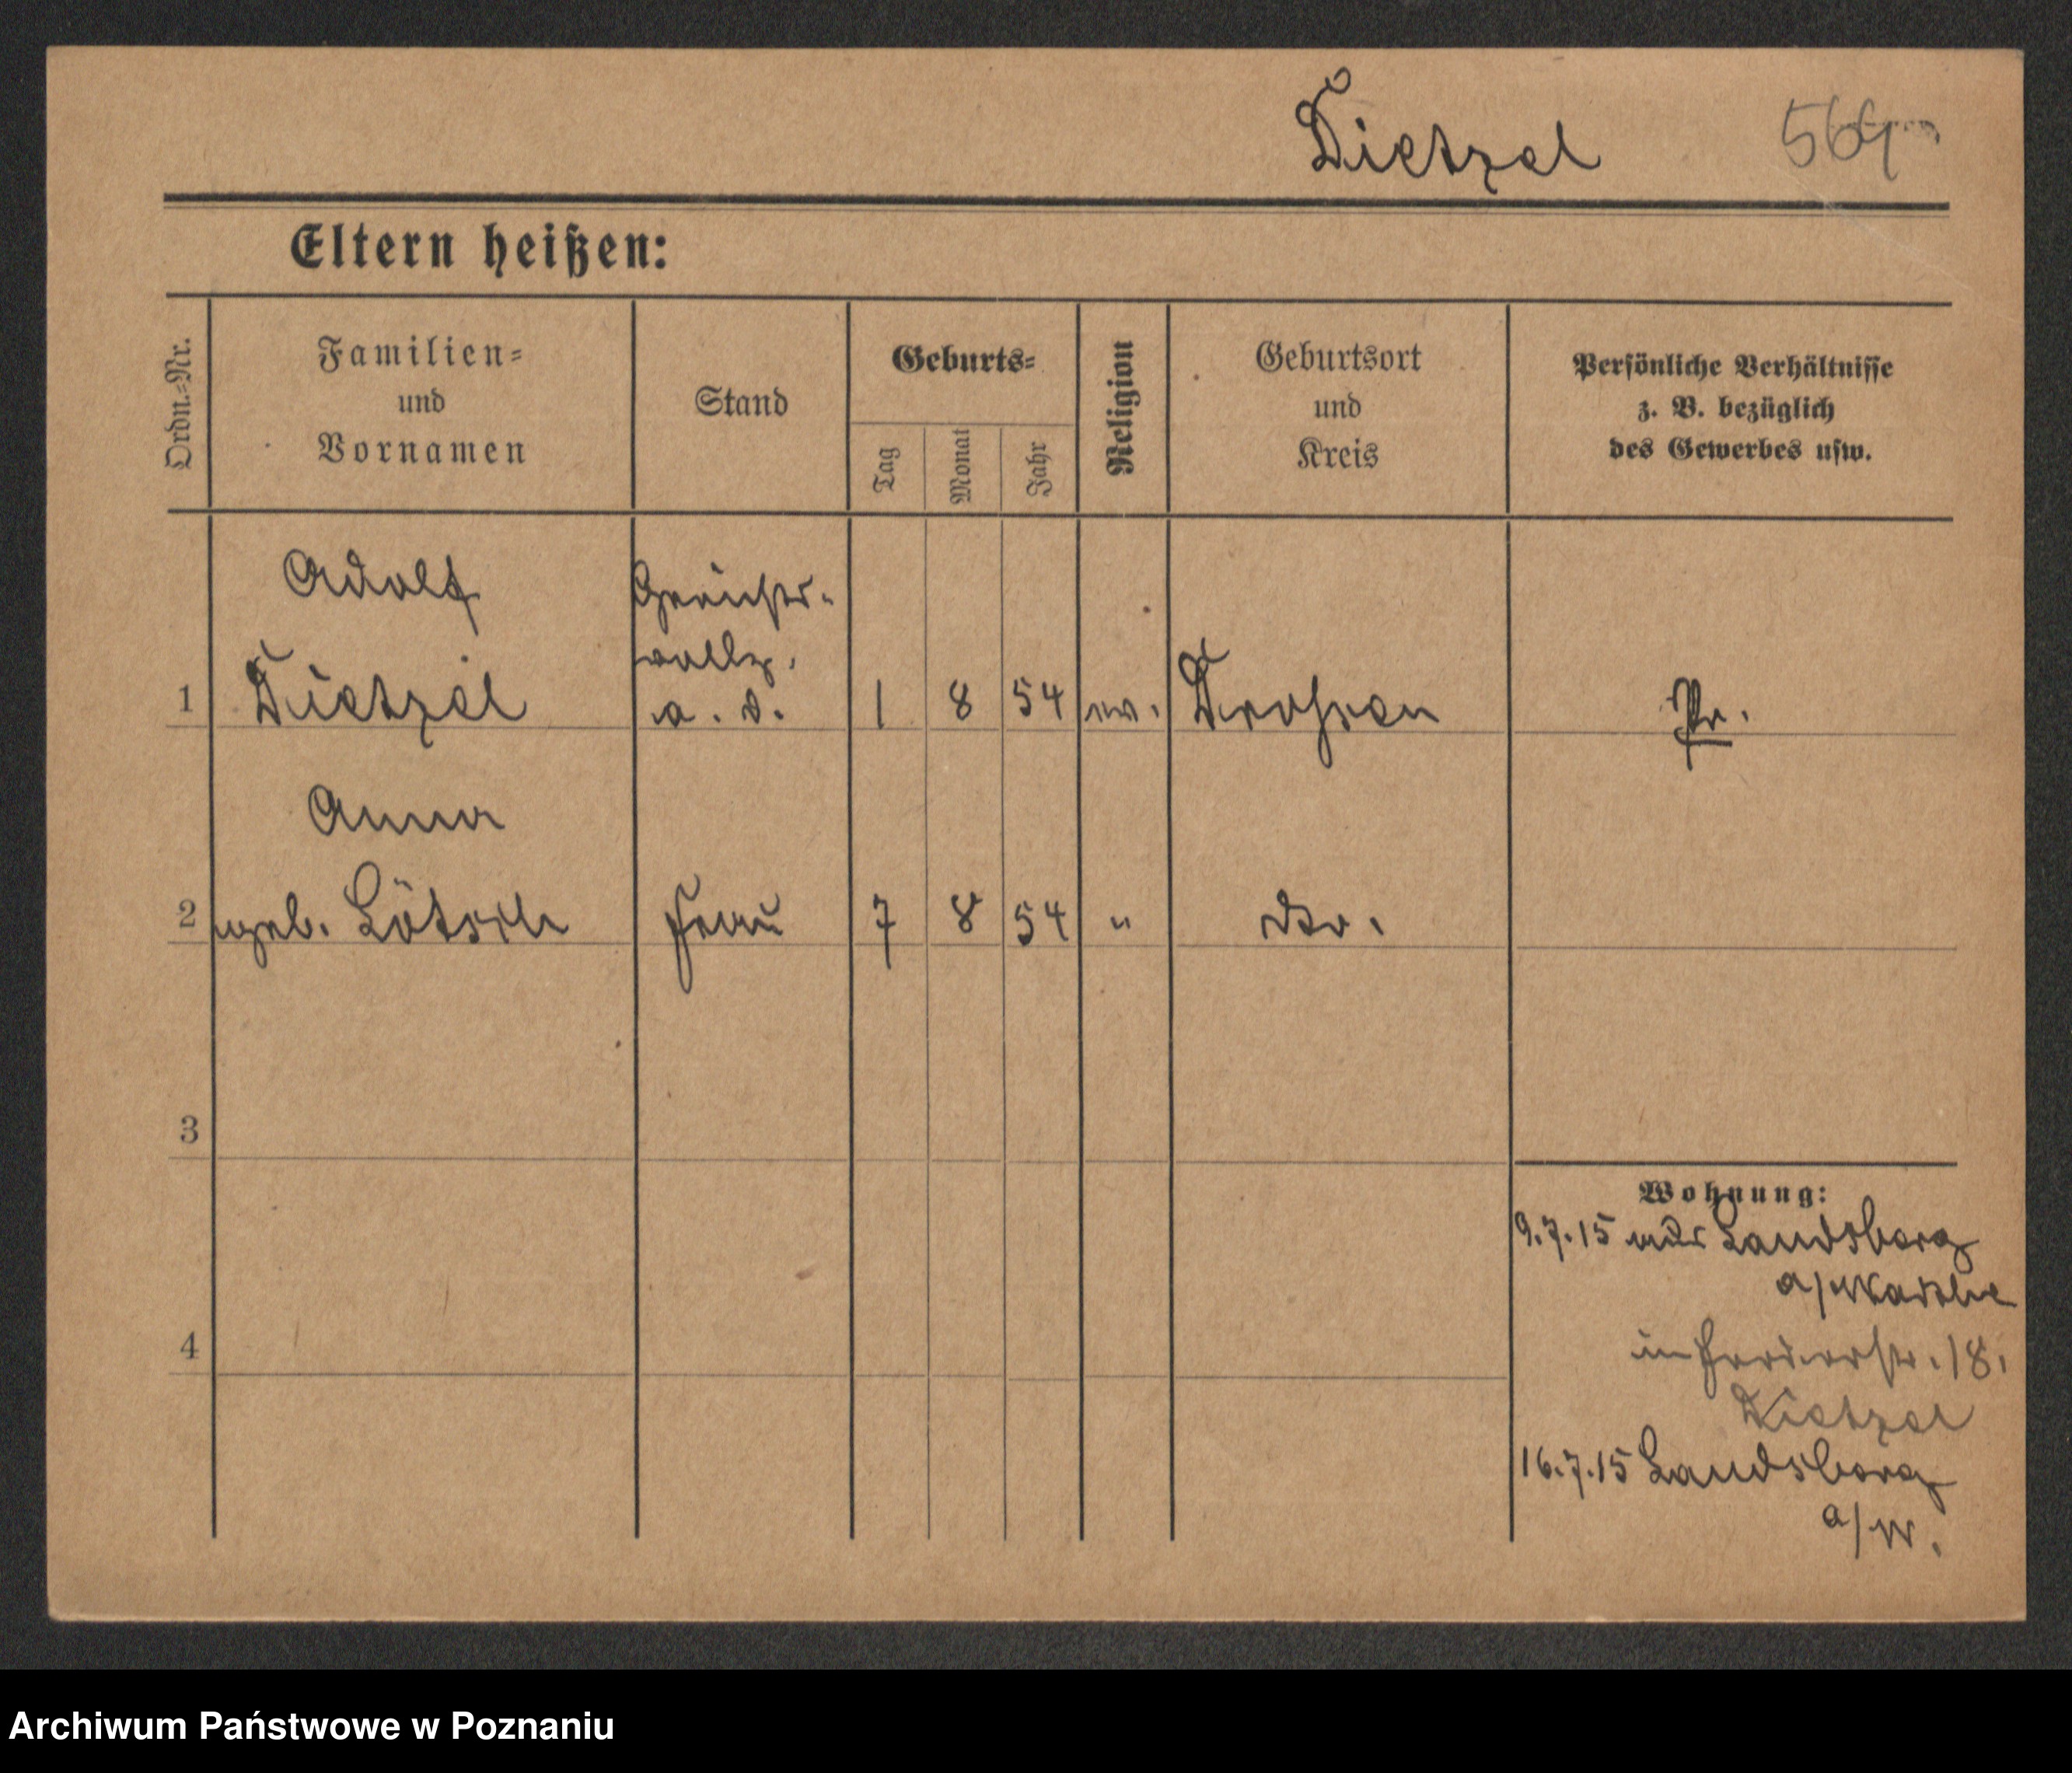 Dietzel 569
Eltern heißen:
Ordn.-Nr.
Familien-
und
Vornamen
Stand
Geburts-
Tag
Monat
Jahr
Religion
Geburtsort
und
Kreis
Persönliche Verhältnisse
z. B. bezüglich
des Gewerbes usw.
Adolf
Gerichts-
vollz.
1 Dietzel a. D. 1 8 54 ev. Drossen Pr.
Anna
2 geb. Lötsch Frau 7 8 54 " dto.
3
Wohnung:
9.7.15 aus Landsberg
a/Warthe
4
in 18.
Dietzel
16.7.15 Landsberg
a/W.
Archiwum Państwowe w Poznaniu